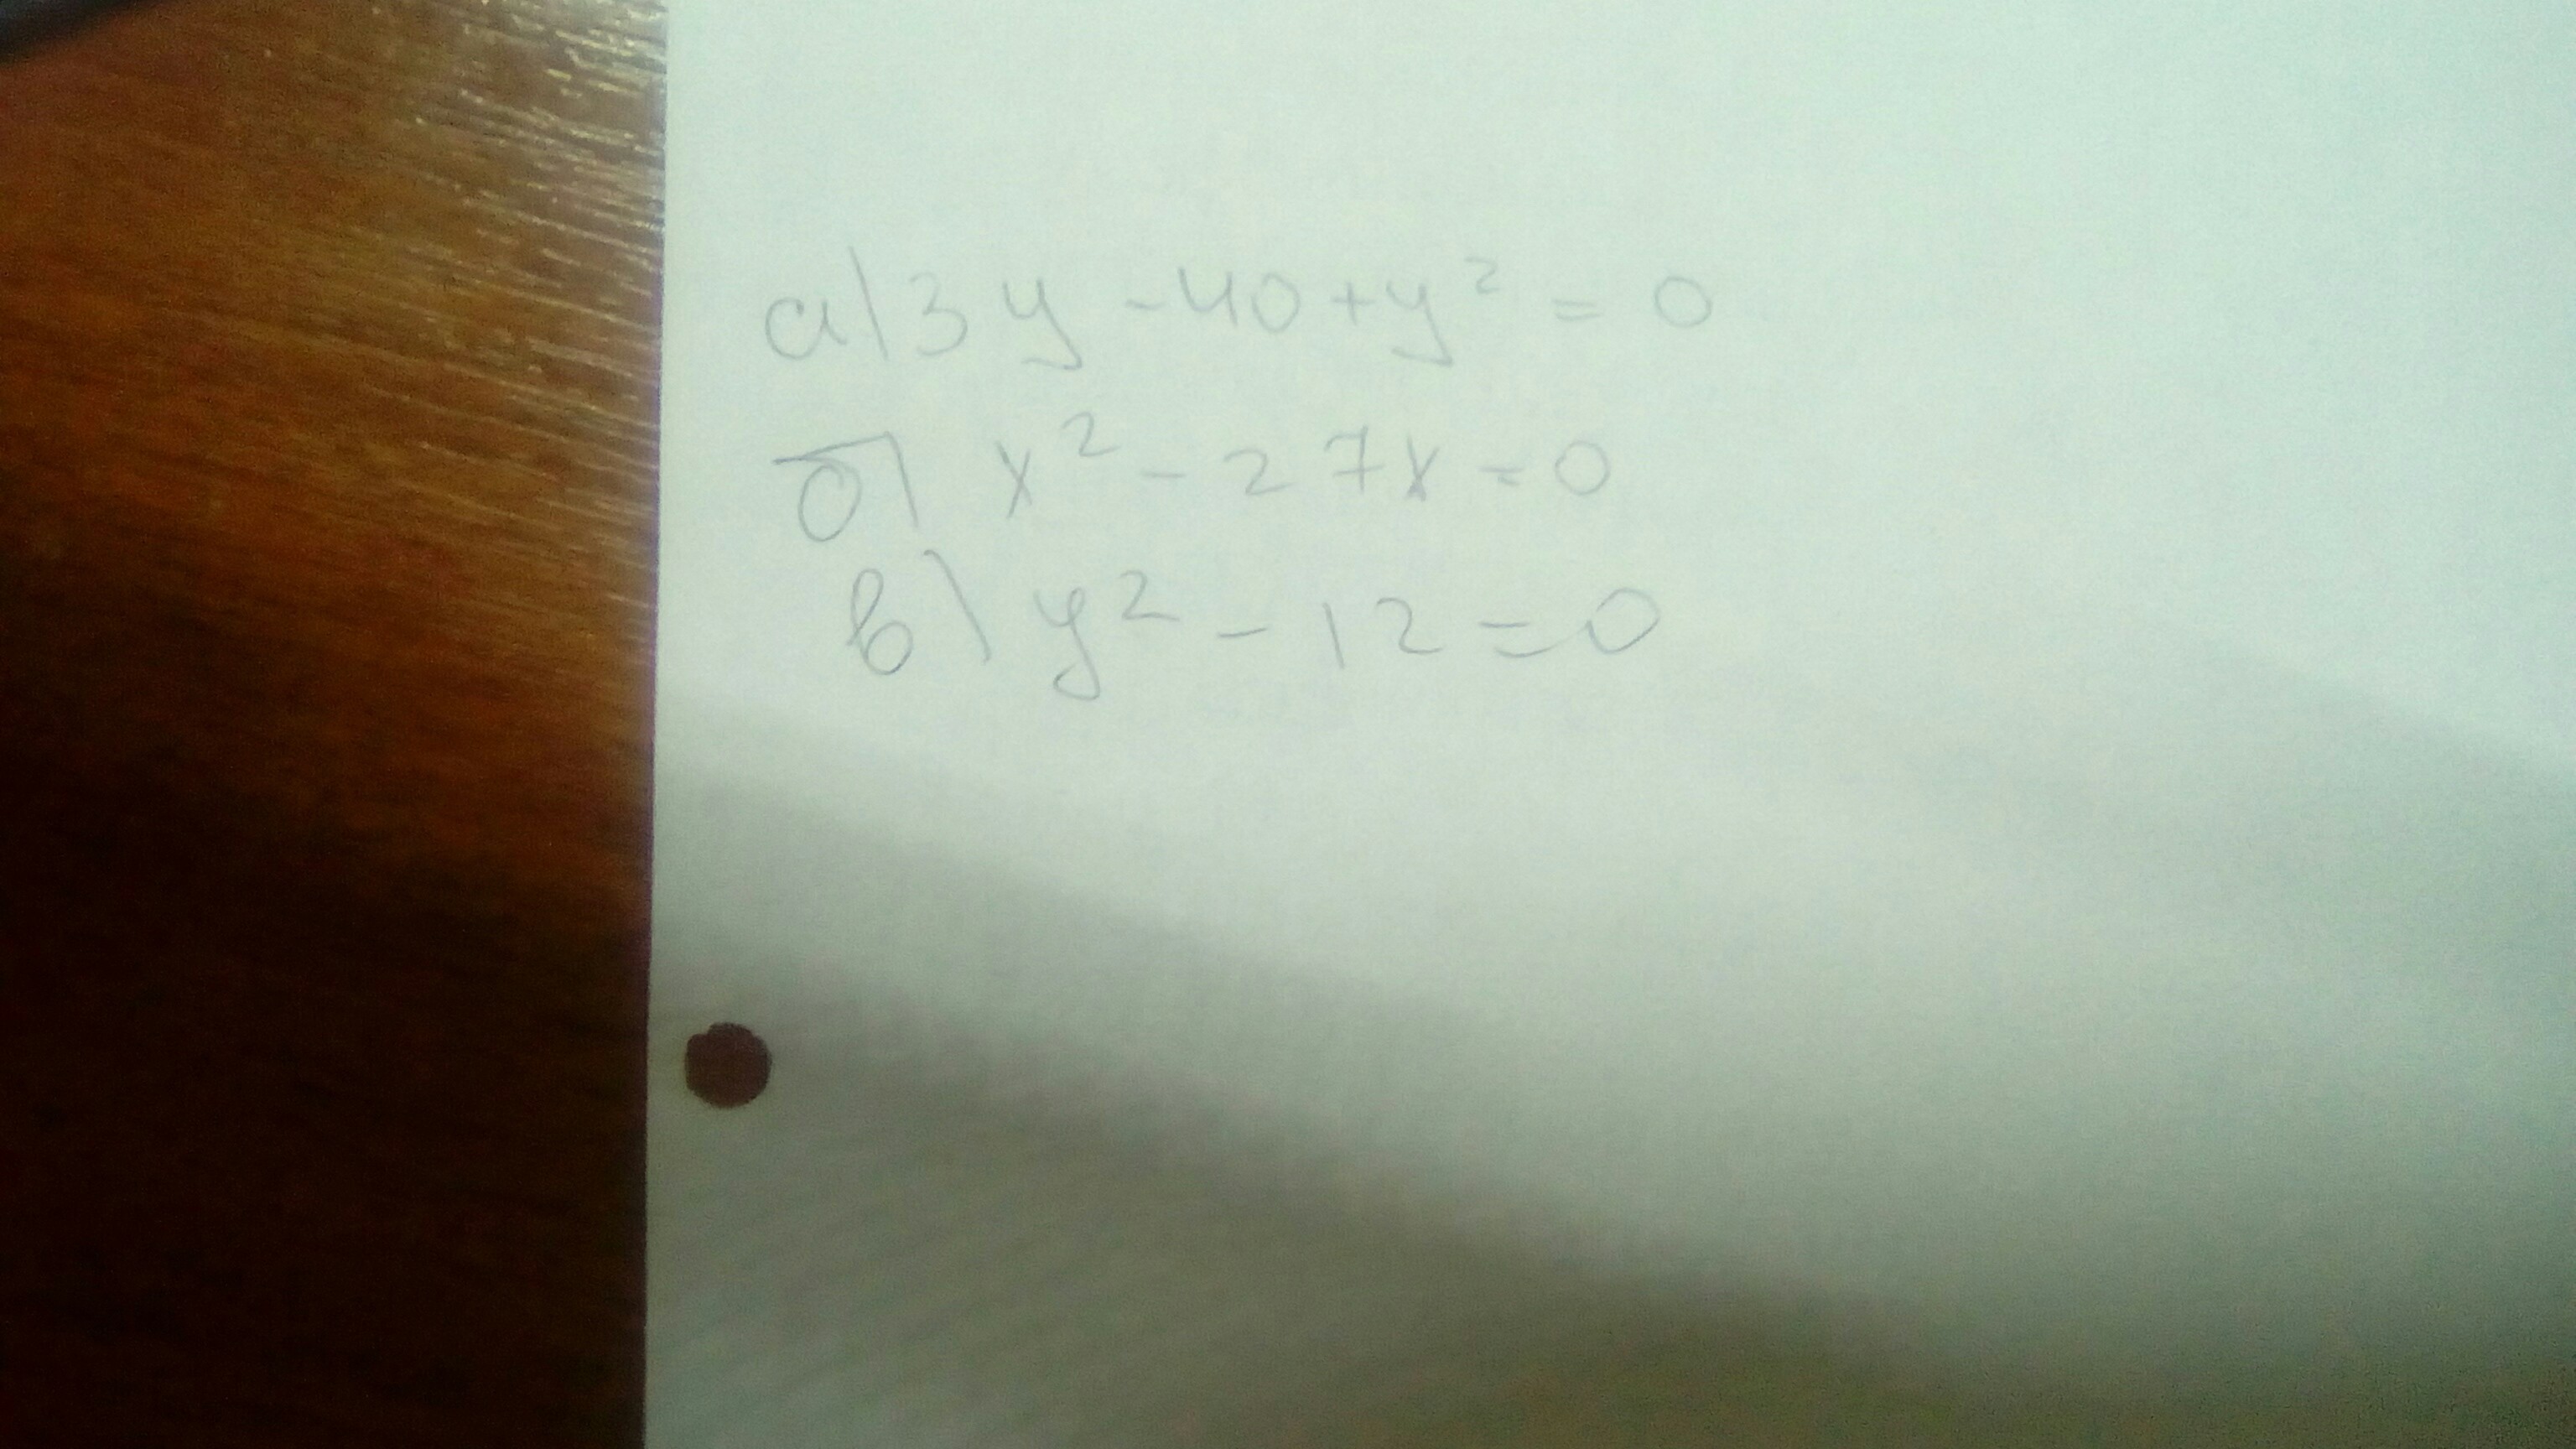 а) 3y - 40 + y² = 0
б) x² - 27x = 0
в) y² - 12 = 0